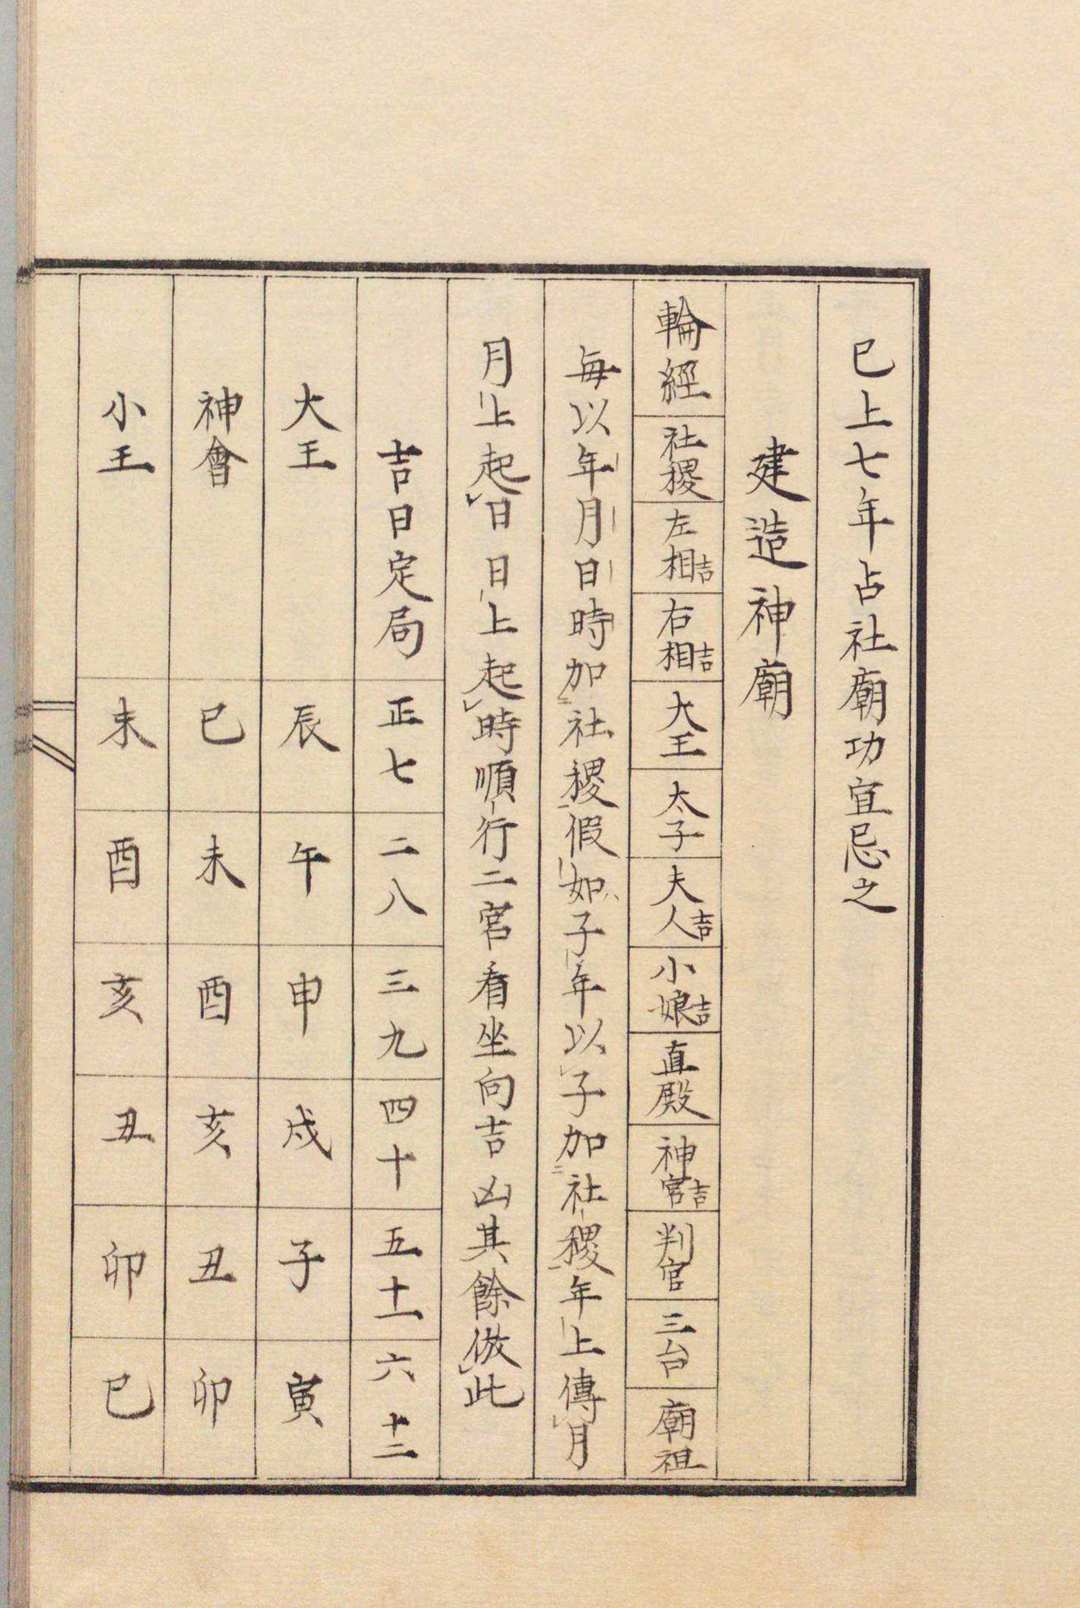 已上七年占社廟功宜忌之
建造神廟
輪經 社稷 左相吉 右相吉 大王 太子 夫人吉 小娘吉 直殿 神官吉 判官 三台 廟祖
每以年月日時加社稷假如子年以子加社稷年上傳月
月上起日日上起時順行二宮看坐向吉凶其餘倣此
吉日定局 正七 二八 三九 四十 五十一 六十二
大王 辰 午 申 戌 子 寅
神會 巳 未 酉 亥 丑 卯
小王 未 酉 亥 丑 卯 巳